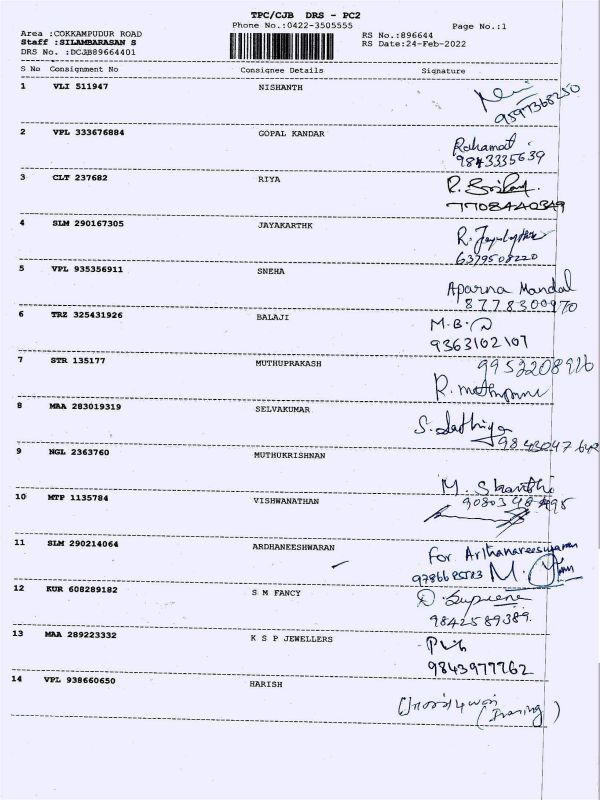 TPC/CJB DRS - PC2
Phone No.:0422-3505555 Page No.:1
Area :COKKAMPUDUR ROAD RS No.:896644
Staff :SILAMBARASAN S RS Date:24-Feb-2022
DRS No. :DCJB89664401
S No Consignment No Consignee Details Signature
1 VLI 511947 NISHANTH
9597368250
2 VPL 333676884 GOPAL KANDAR
Rahamat
9843335639
3 CLT 237682 RIYA
7708440349
4 SLM 290167305 JAYAKARTHK
6379508220
5 VPL 935356911 SNEHA
Aparna Mandal
8778300970
6 TRZ 325431926 BALAJI
M.B.
9363102107
7 STR 135177 MUTHUPRAKASH
9952208926
8 MAA 283019319 SELVAKUMAR
9 NGL 2363760 MUTHUKRISHNAN
10 MTP 1135784 VISHWANATHAN
11 SLM 290214064 ARDHANEESHWARAN
For Arthanareeswaran
12 KUR 608289182 S M FANCY
9842589389
13 MAA 289223332 K S P JEWELLERS
9843977762
14 VPL 938660650 HARISH